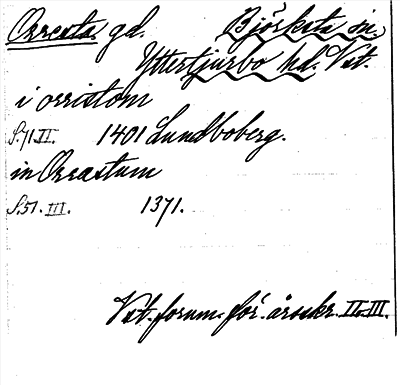 Orresta gd. Björksta sn.
Yttertjurbo hd. Vst.
i orristom
S.71.II. 1401 Lundboberg.
in Orrastum
S.51. III. 1371.
Vst. fornm. för. årsskr. II-III.